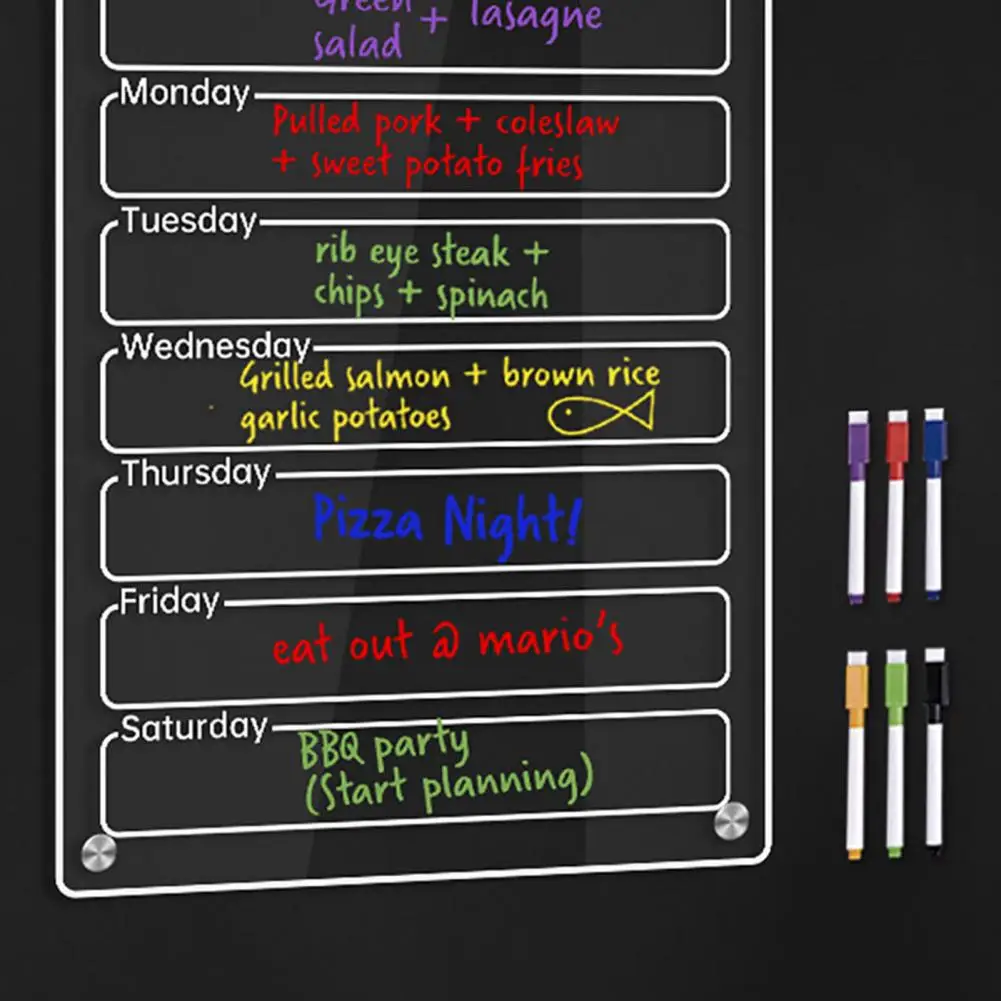 Green + lasagne
salad
Monday
Pulled pork + coleslaw
+ sweet potato fries
Tuesday
rib eye steak +
chips + spinach
Wednesday
Grilled salmon + brown rice
garlic potatoes
Thursday
Pizza Night!
Friday
eat out @ mario's
Saturday
BBQ party
(Start planning)